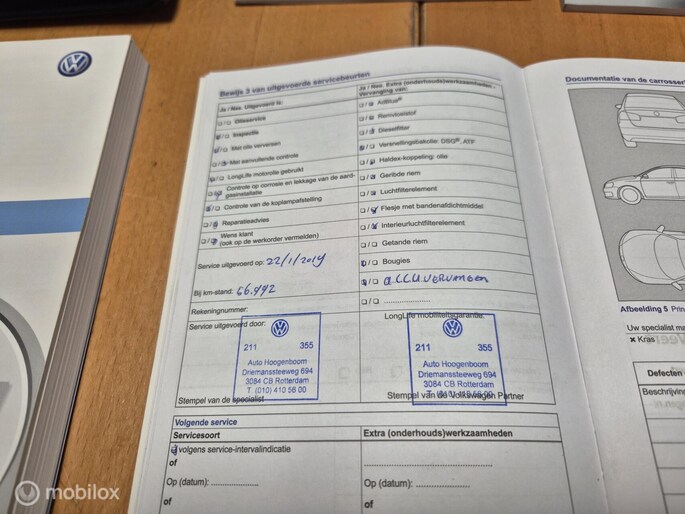 Bewijs 3 van uitgevoerde servicebeurten
Ja / Nee. Uitgevoerd is:
□/□ Olieservice
□/□ Inspectie
□/□ Met olie verversen
□/□ Met aanvullende controle
□/□ LongLife motorolie gebruikt
□/□ Controle op corrosie en lekkage van de aard-
gasinstallatie
□/□ Controle van de koplampafstelling
□/□ Reparatieadvies
□/□ Wens klant
(ook op de werkorder vermelden)
Service uitgevoerd op: 22/1/2019
Bij km-stand: 66.492
Rekeningnummer:
Service uitgevoerd door:
211 355
Auto Hoogenboom
Driemanssteeweg 694
3084 CB Rotterdam
T. (010) 410 56 00
Stempel van de specialist
Ja / Nee. Extra (onderhouds)werkzaamheden -
Vervanging van:
□/□ AdBlue®
□/□ Remvloeistof
□/□ Dieselfilter
□/□ Versnellingsbakolie: DSG®, ATF
□/□ Haldex-koppeling: olie
□/□ Geribde riem
□/□ Luchtfilterelement
□/□ Flesje met bandenafdichtmiddel
□/□ Interieurluchtfilterelement
□/□ Getande riem
□/□ Bougies
□/□ accu vervangen
□/□ ....................
LongLife mobiliteitsgarantie:
211 355
Auto Hoogenboom
Driemanssteeweg 694
3084 CB Rotterdam
T. (010) 410 56 00
Stempel van de Volkswagen Partner
Volgende service
Servicesoort
Extra (onderhouds)werkzaamheden
□ volgens service-intervalindicatie
of
of
Op (datum): ....................
Op (datum): ....................
of
of
Documentatie van de carrosser
Afbeelding 5 Prin
Uw specialist ma
× Kras
Defecten
Beschrijving
mobilox